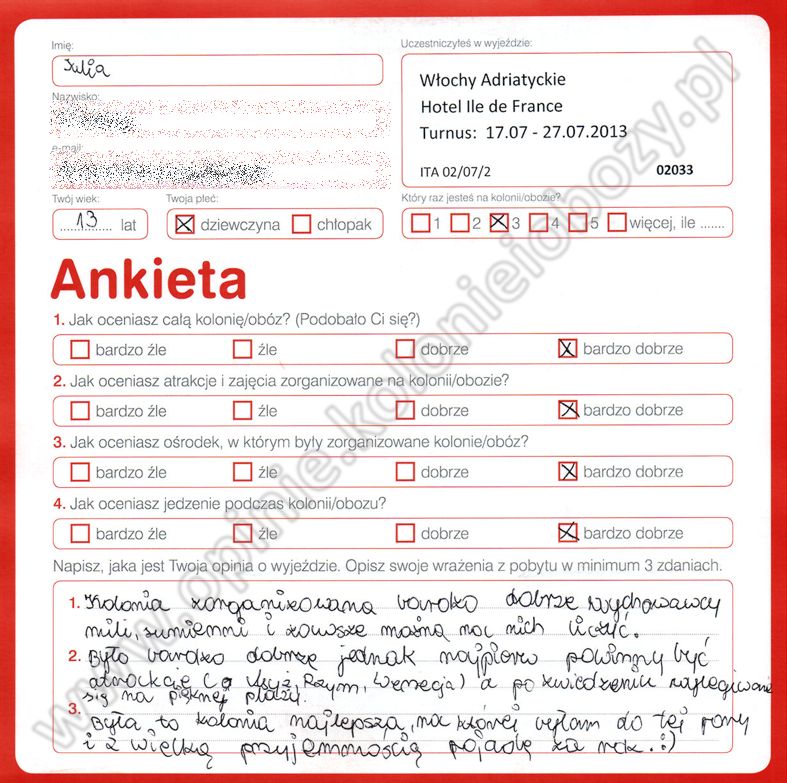 Imię:
Julia
Uczestniczyłeś w wyjeździe:
Włochy Adriatyckie
Hotel Ile de France
Turnus: 17.07 - 27.07.2013
ITA 02/07/2 02033
Nazwisko:
e-mail:
Twój wiek: Twoja płeć: Który raz jesteś na kolonii/obozie?
13 lat dziewczyna chłopak 1 2 3 4 5 więcej, ile .......
Ankieta
1. Jak oceniasz całą kolonię/obóz? (Podobało Ci się?)
bardzo źle źle dobrze bardzo dobrze
2. Jak oceniasz atrakcje i zajęcia zorganizowane na kolonii/obozie?
bardzo źle źle dobrze bardzo dobrze
3. Jak oceniasz ośrodek, w którym były zorganizowane kolonie/obóz?
bardzo źle źle dobrze bardzo dobrze
4. Jak oceniasz jedzenie podczas kolonii/obozu?
bardzo źle źle dobrze bardzo dobrze
Napisz, jaka jest Twoja opinia o wyjeździe. Opisz swoje wrażenia z pobytu w minimum 3 zdaniach.
1. Kolonia zorganizowana bardzo dobrze wychowawcy
mili, sumienni i zawsze można na nich liczyć.
2. Było bardzo dobrze jednak najpierw powinny być
atrakcje ( Rzym, Wenecja) a po zwiedzeniu
się na pięknej plaży.
3. Była to kolonia najlepsza, na której byłam do tej pory
i z wielką przyjemnością pojadę za rok. :)
www.opinie.kolonieiobozy.pl